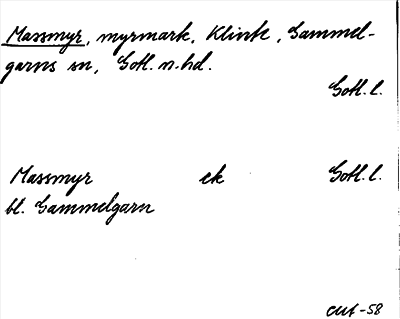 Massmyr, myrmark, Klinte, Gammel-
garns sn, Gotl. n. hd.
Gotl. l.
Massmyr ek Gotl. l.
bl. Gammelgarn